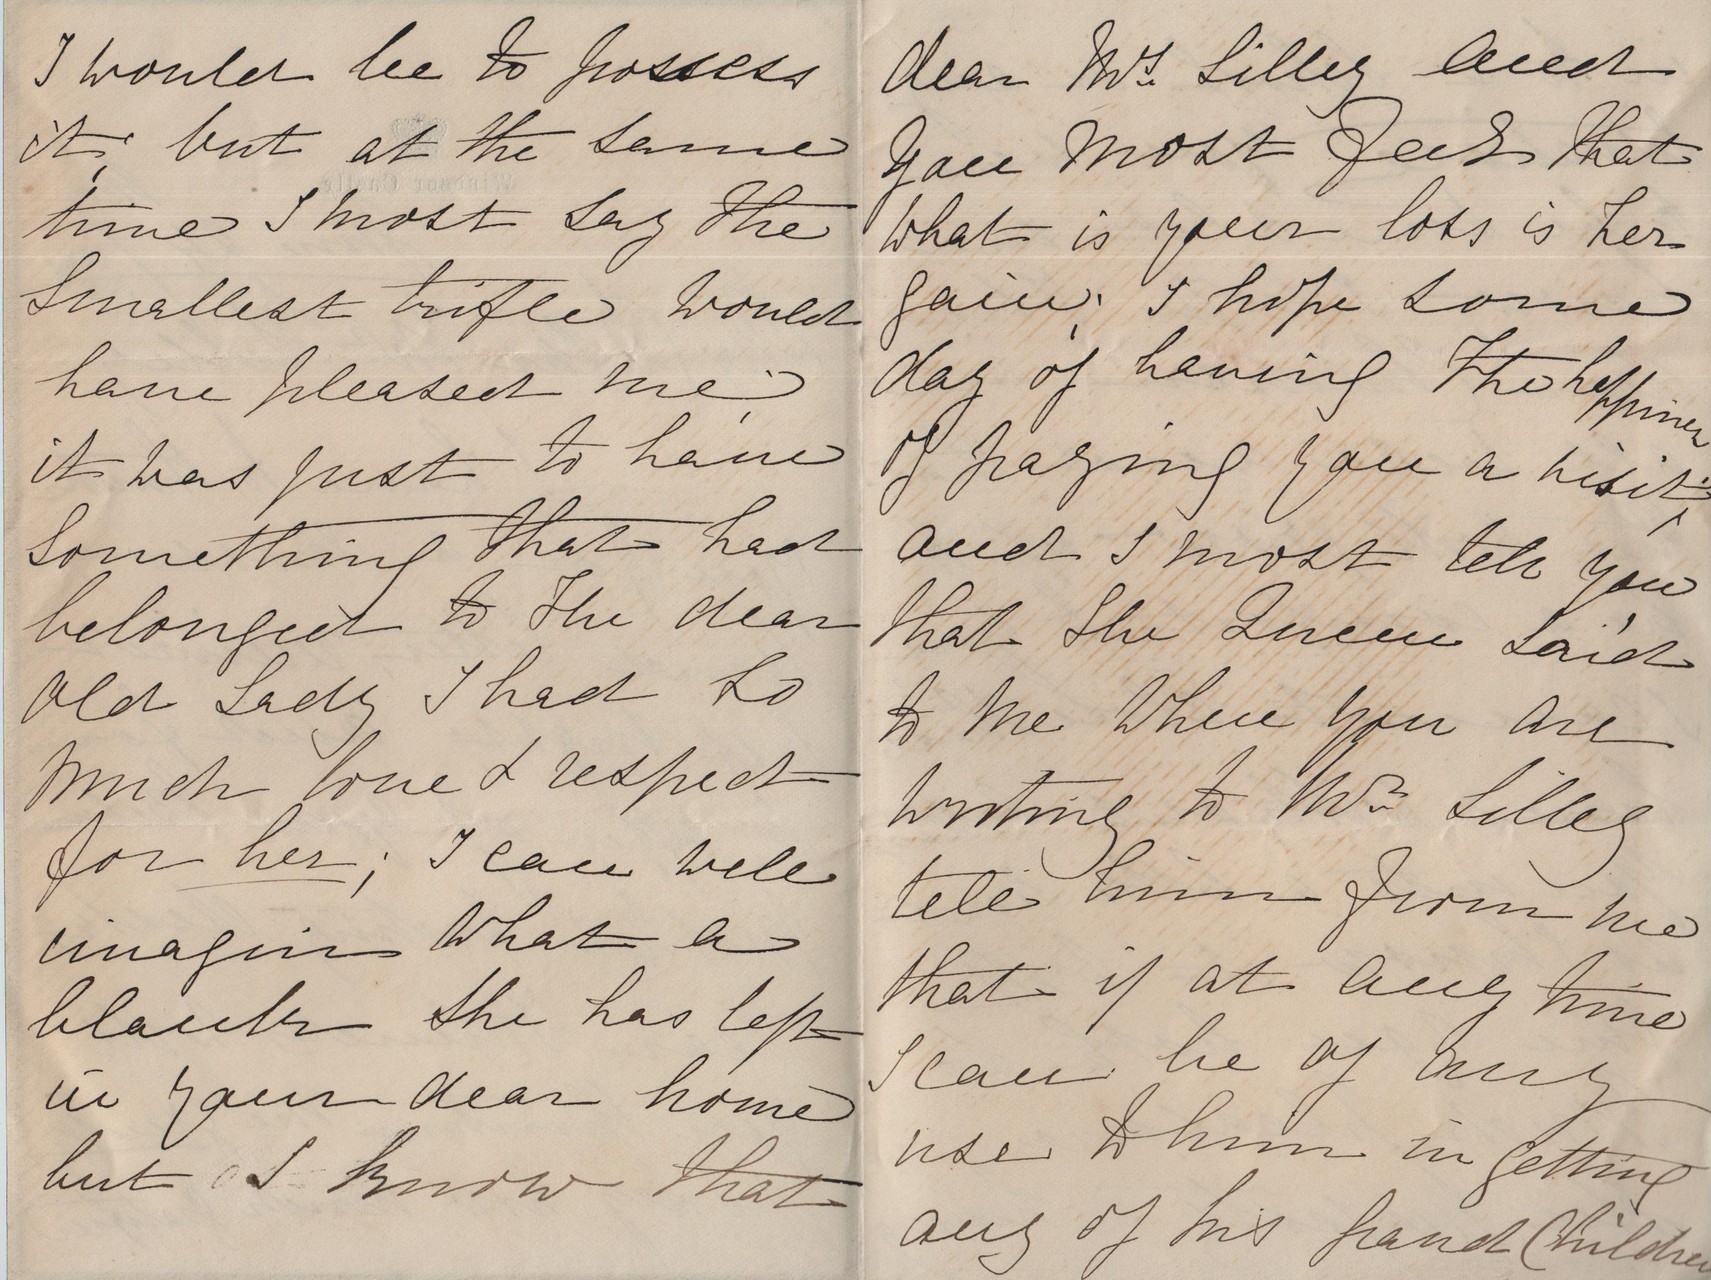 I would be to possess
it; but at the same
time I most say the
Smallest trifle would
have pleased me;
it was just to have
Something that had
belonged to the dear
old Lady I had so
much love & respect
for her; I can well
imagin what a
blank she has left
in your dear home
but I know that
dear Mrs. Lilley and
you most feel that
what is your loss is her
gain; I hope some
day of having the happiness
of paying you a visit;
and I most tell you
that the Queen said
to me when you are
writing to Mr. Lilley
tell him from me
that if at any time
I can be of any
use to him in getting
any of his grand Children
Windsor Castle